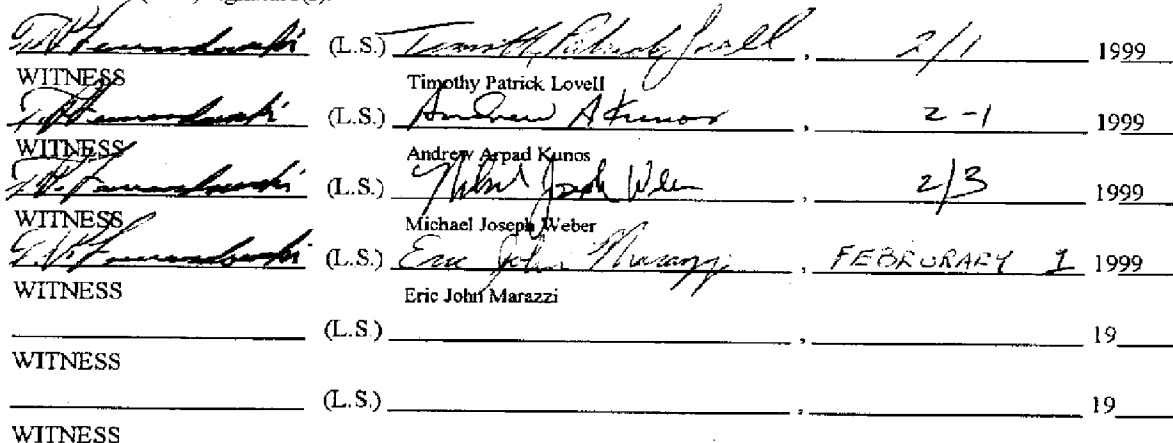 (L.S.) Timothy Patrick Lovell , 2/1 1999
WITNESS Timothy Patrick Lovell
(L.S.) Andrew A Kunos , 2-1 1999
WITNESS Andrew Arpad Kunos
(L.S.) Michael Joseph Weber 2/3 1999
WITNESS Michael Joseph Weber
(L.S.) Eric John Marazzi , FEBRURARY 1 1999
WITNESS Eric John Marazzi
(L.S.) , 19
WITNESS
(L.S.) , 19
WITNESS